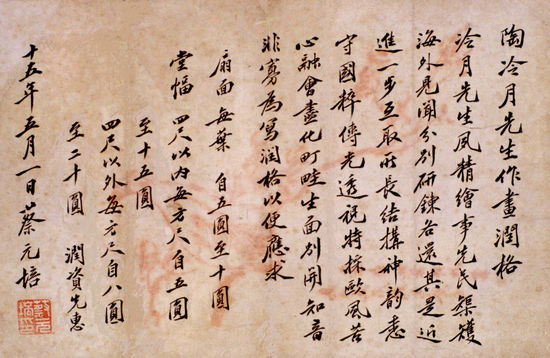 陶冷月先生作畫潤格
冷月先生夙精繪事先民榘矱
海外見聞分別研鍊各還其是近
進一步互取所長結構神韵悉
守國粹傳光透視特採歐風苦
心融會盡化町畦生面別開知音
非寡為寫潤格以便應求
扇面 每葉 自五圓至十圓
堂幅 四尺以內每方尺自五圓
至十五圓
四尺以外每方尺自八圓
至二十圓 潤資先惠
十五年五月一日蔡元培